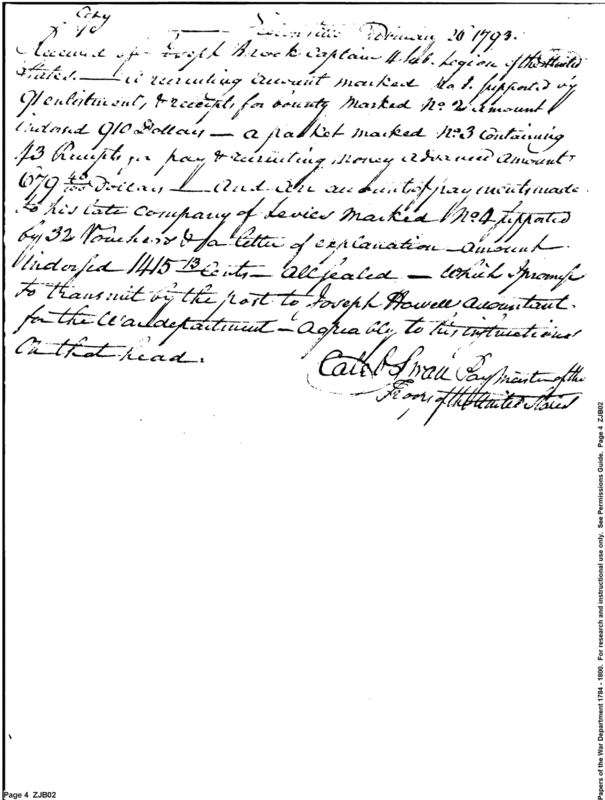 Copy
February 20 1793.
Received of Joseph Brock Captain 4 Sub. Legion of the United
States. — a recruiting account marked No 1. supported by
91 enlistments, & receipts for bounty marked No 2 amount
indorsed 910 Dollars — a packet marked No 3 containing
73 Receipts for pay & recruiting money advanced amount
679 Dollars — And an account of payments made
to his late company of Levies marked No 4 supported
by 32 Vouchers & a letter of explanation — amount
indorsed 1415 13 Cents — all sealed — which I promise
to transmit by the post to Joseph Howell Accountant
for the War department — agreably to his instructions
on that head.
Caleb Swan Pay Master of the
Troops of the United States
Page 4 ZJB02
Papers of the War Department 1784 - 1800. For research and instructional use only. See Permissions Guide. Page 4 ZJB02